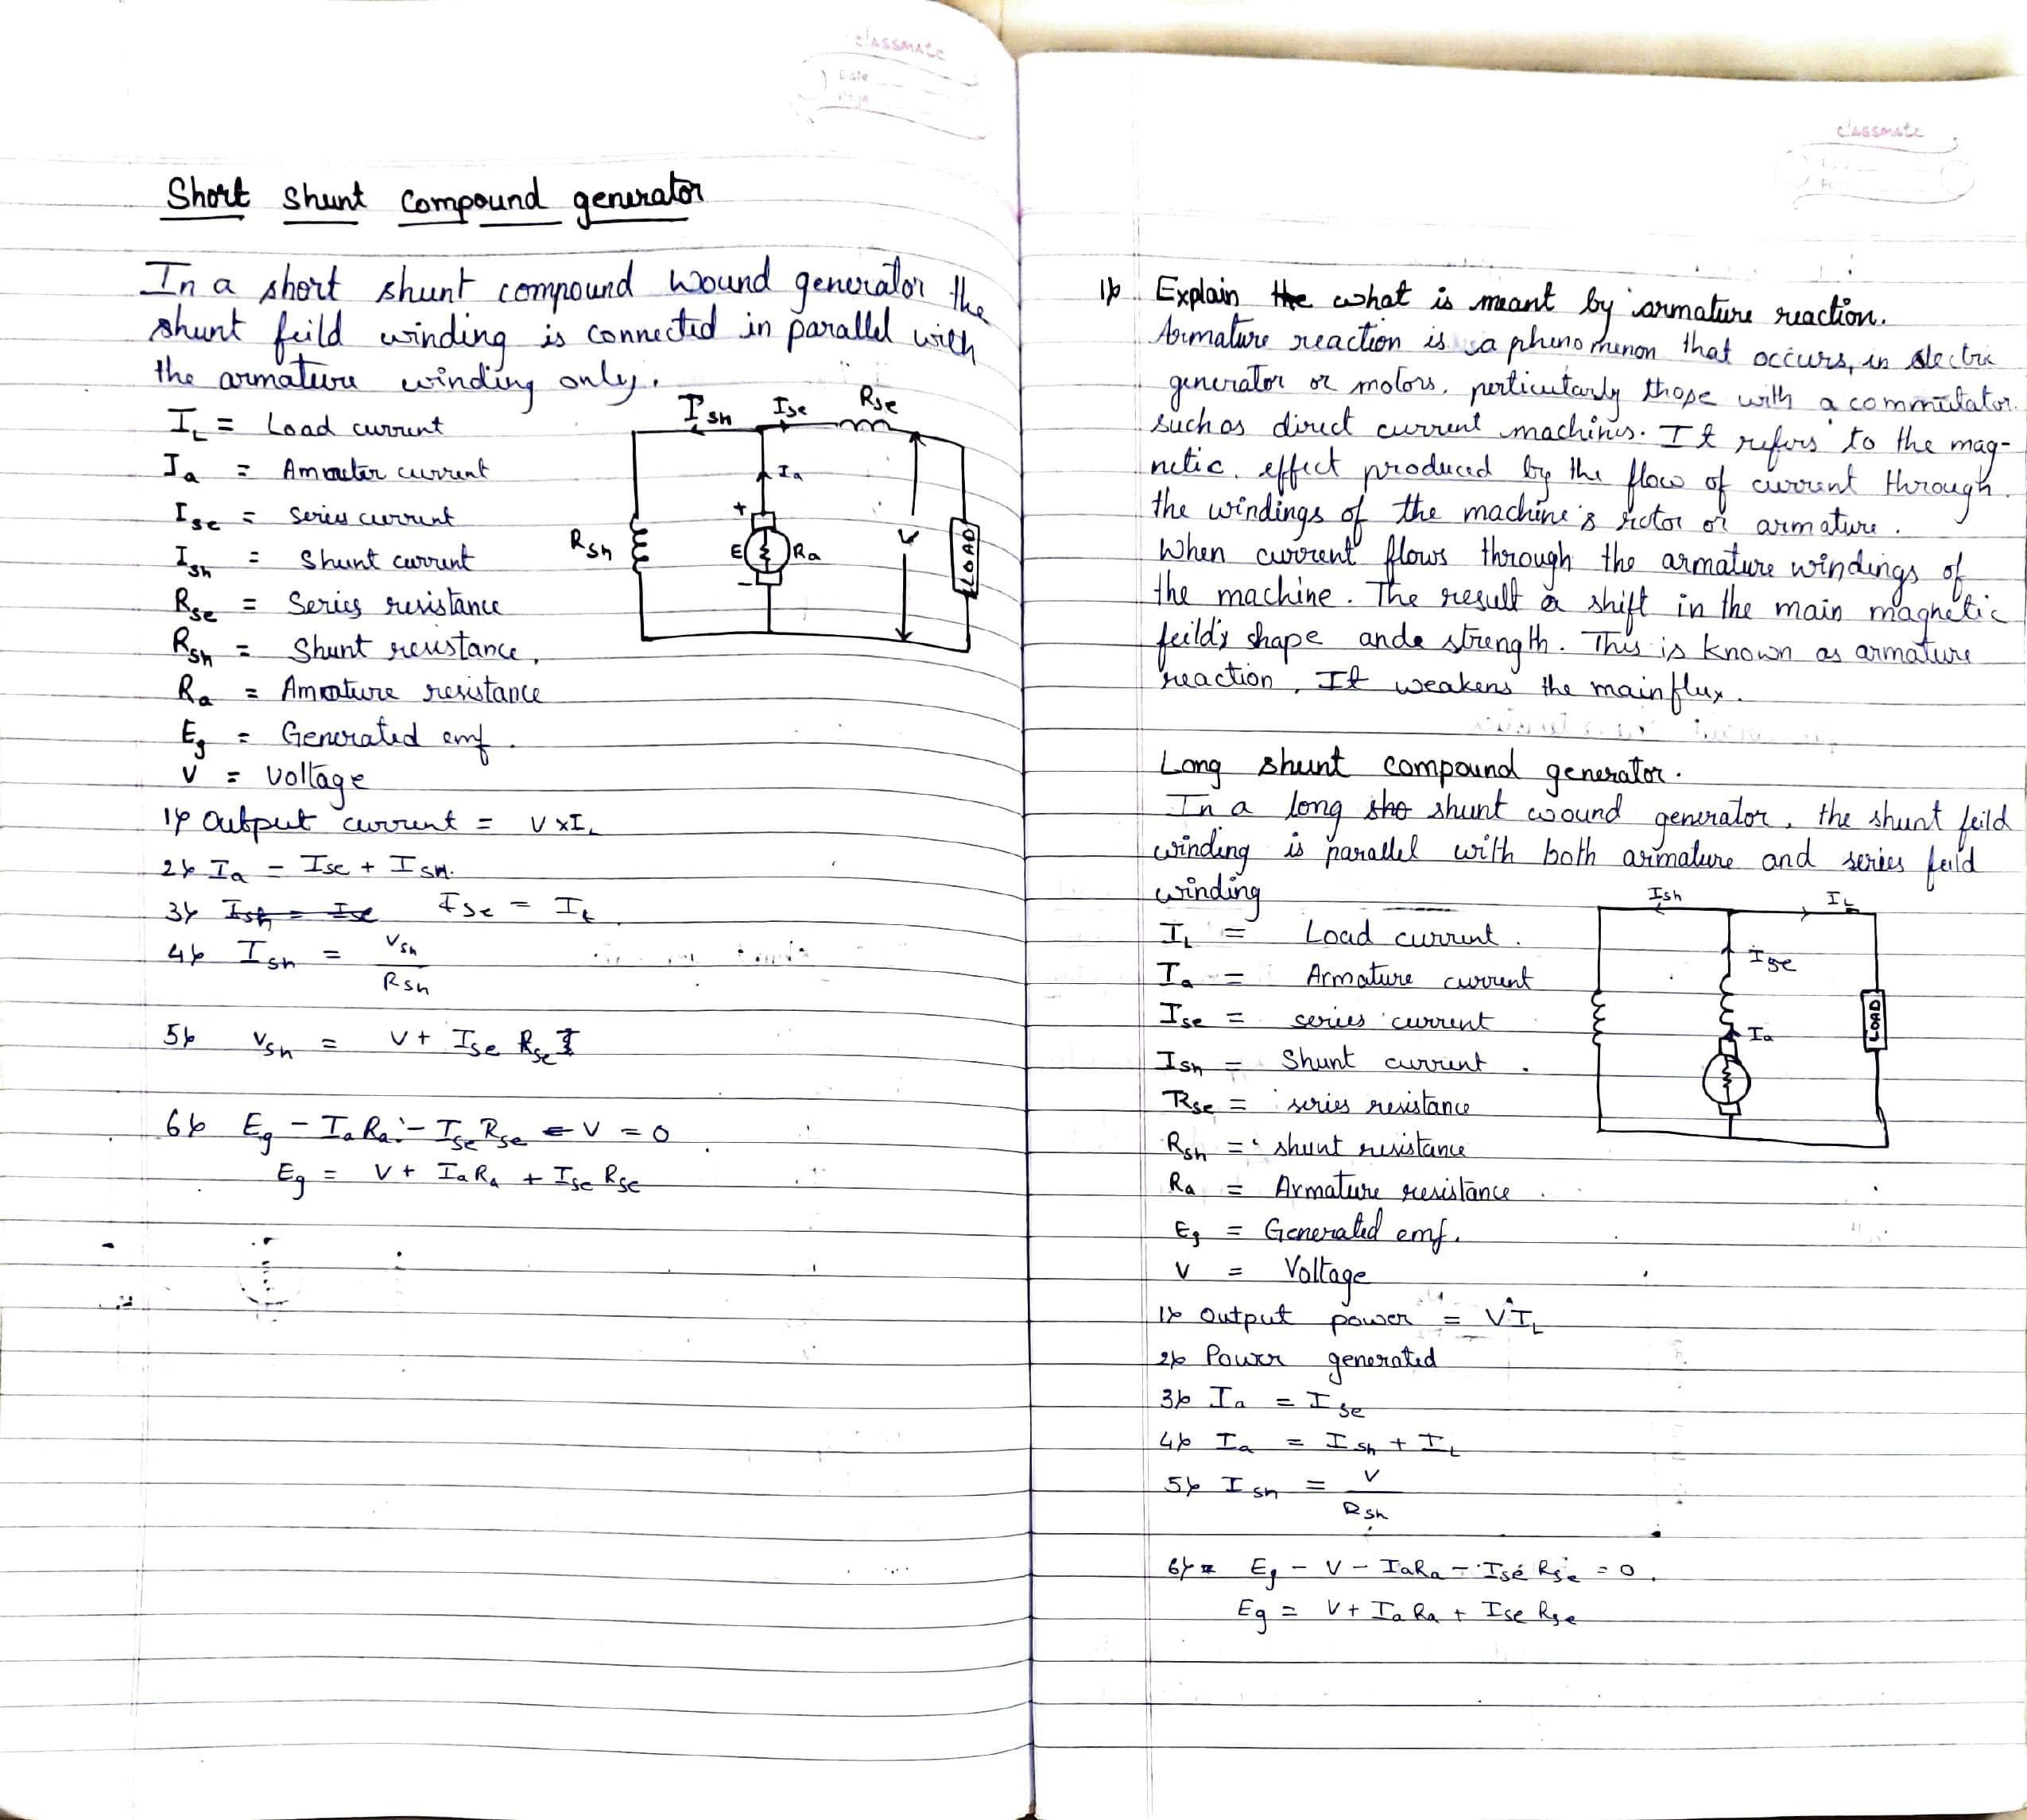 classmate
Date
Page
Short shunt compound generator
In a short shunt compound wound generator the
shunt feild winding is connected in parallel with
the armature winding only.
I_L = Load current
I_a = Amrater current
I_se = Series current
I_sh = Shunt current
R_se = Series resistance
R_sh = Shunt resistance,
R_a = Amrature resistance
E_g = Generated emf.
V = Voltage
I_sh I_se R_se
I_a
+
R_sh E R_a V LOAD
-
1) Output current = V x I_L
2) I_a = I_se + I_sh.
3) I_sh = I_se I_se = I_L
4) I_sh = V_sh / R_sh
5) V_sh = V + I_se R_se
6) E_g - I_a R_a - I_se R_se - V = 0
E_g = V + I_a R_a + I_se R_se
classmate
1) Explain the what is meant by armature reaction.
Armature reaction is a phenomenon that occurs, in electric
generator or motors, perticutarly those with a commutator.
such as direct current machines. It refers to the mag-
netic effect produced by the flow of current through
the windings of the machine's rotor or armature.
When current flows through the armature windings of
the machine. The result a shift in the main magnetic
feild's shape ande strength. This is known as armature
reaction, It weakens the main flux.
Long shunt compound generator.
In a long sho shunt wound generator, the shunt feild
winding is parallel with both armature and series feild
winding
I_L = Load current.
I_a = Armature current
I_se = series current
I_sh = Shunt current.
R_se = series resistance
R_sh = shunt resistance
R_a = Armature resistance
E_g = Generated emf.
V = Voltage
I_sh I_L
I_se
I_a LOAD
1) Output power = V I_L
2) Power generated
3) I_a = I_se
4) I_a = I_sh + I_L
5) I_sh = V / R_sh
6) E_g - V - I_a R_a - I_se R_se = 0.
E_g = V + I_a R_a + I_se R_se